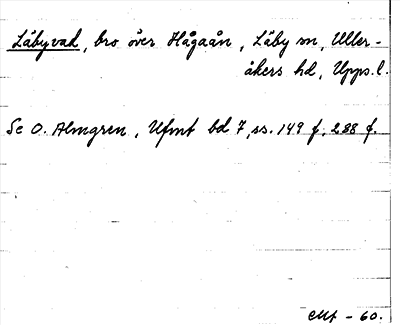 Läbyvad, bro över Hågaån, Läby sn, Uller-
åkers hd, Upps.l.
Se O. Almgren, Ufmt bd 7, ss. 149 f, 288 f.
- 60.